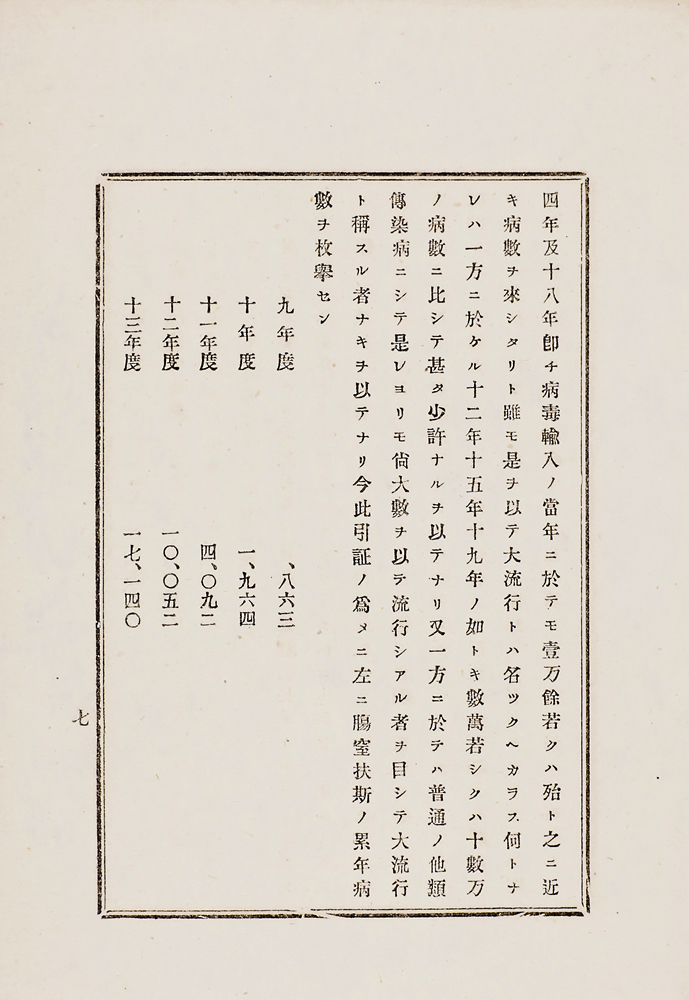 四年及十八年卽チ病毒輸入ノ當年ニ於テモ壹万餘若クハ殆ト之ニ近
キ病數ヲ來シタリト雖モ是ヲ以テ大流行トハ名ツクヘカラス何トナ
レハ一方ニ於ケル十二年十五年十九年ノ如トキ數萬若シクハ十數万
ノ病數ニ比シテ甚タ少許ナルヲ以テナリ又一方ニ於テハ普通ノ他類
傳染病ニシテ是レヨリモ尙大數ヲ以テ流行シアル者ヲ目シテ大流行
ト稱スル者ナキヲ以テナリ今此引証ノ爲メニ左ニ膓窒扶斯ノ累年病
數ヲ枚擧セン
九年度 、八六三
十年度 一、九六四
十一年度 四、〇九二
十二年度 一〇、〇五二
十三年度 一七、一四〇
七